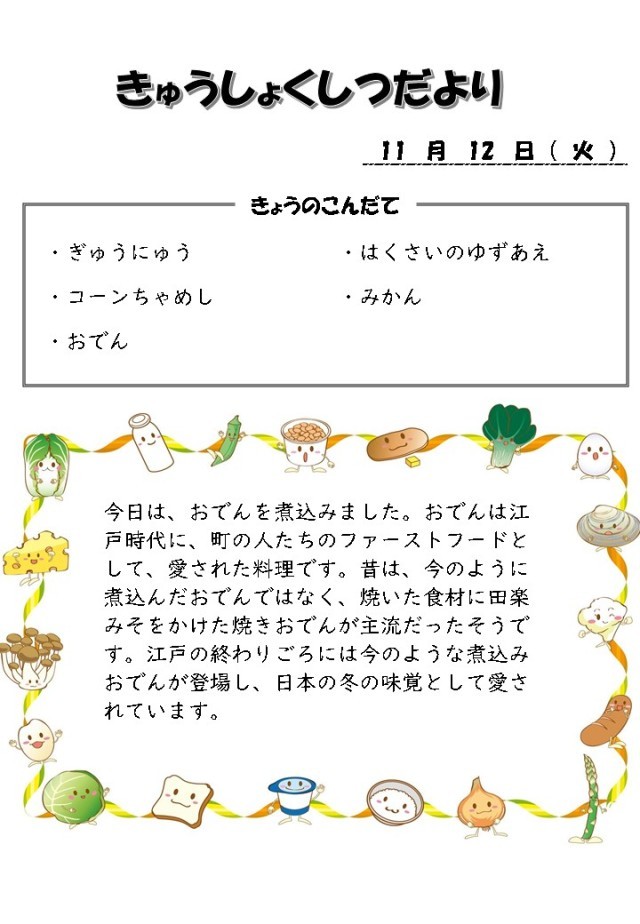 きゅうしょくしつだより
11 月 12 日 ( 火 )
きょうのこんだて
・ぎゅうにゅう
・コーンちゃめし
・おでん
・はくさいのゆずあえ
・みかん
今日は、おでんを煮込みました。おでんは江
戸時代に、町の人たちのファーストフードと
して、愛された料理です。昔は、今のように
煮込んだおでんではなく、焼いた食材に田楽
みそをかけた焼きおでんが主流だったそうで
す。江戸の終わりごろには今のような煮込み
おでんが登場し、日本の冬の味覚として愛さ
れています。